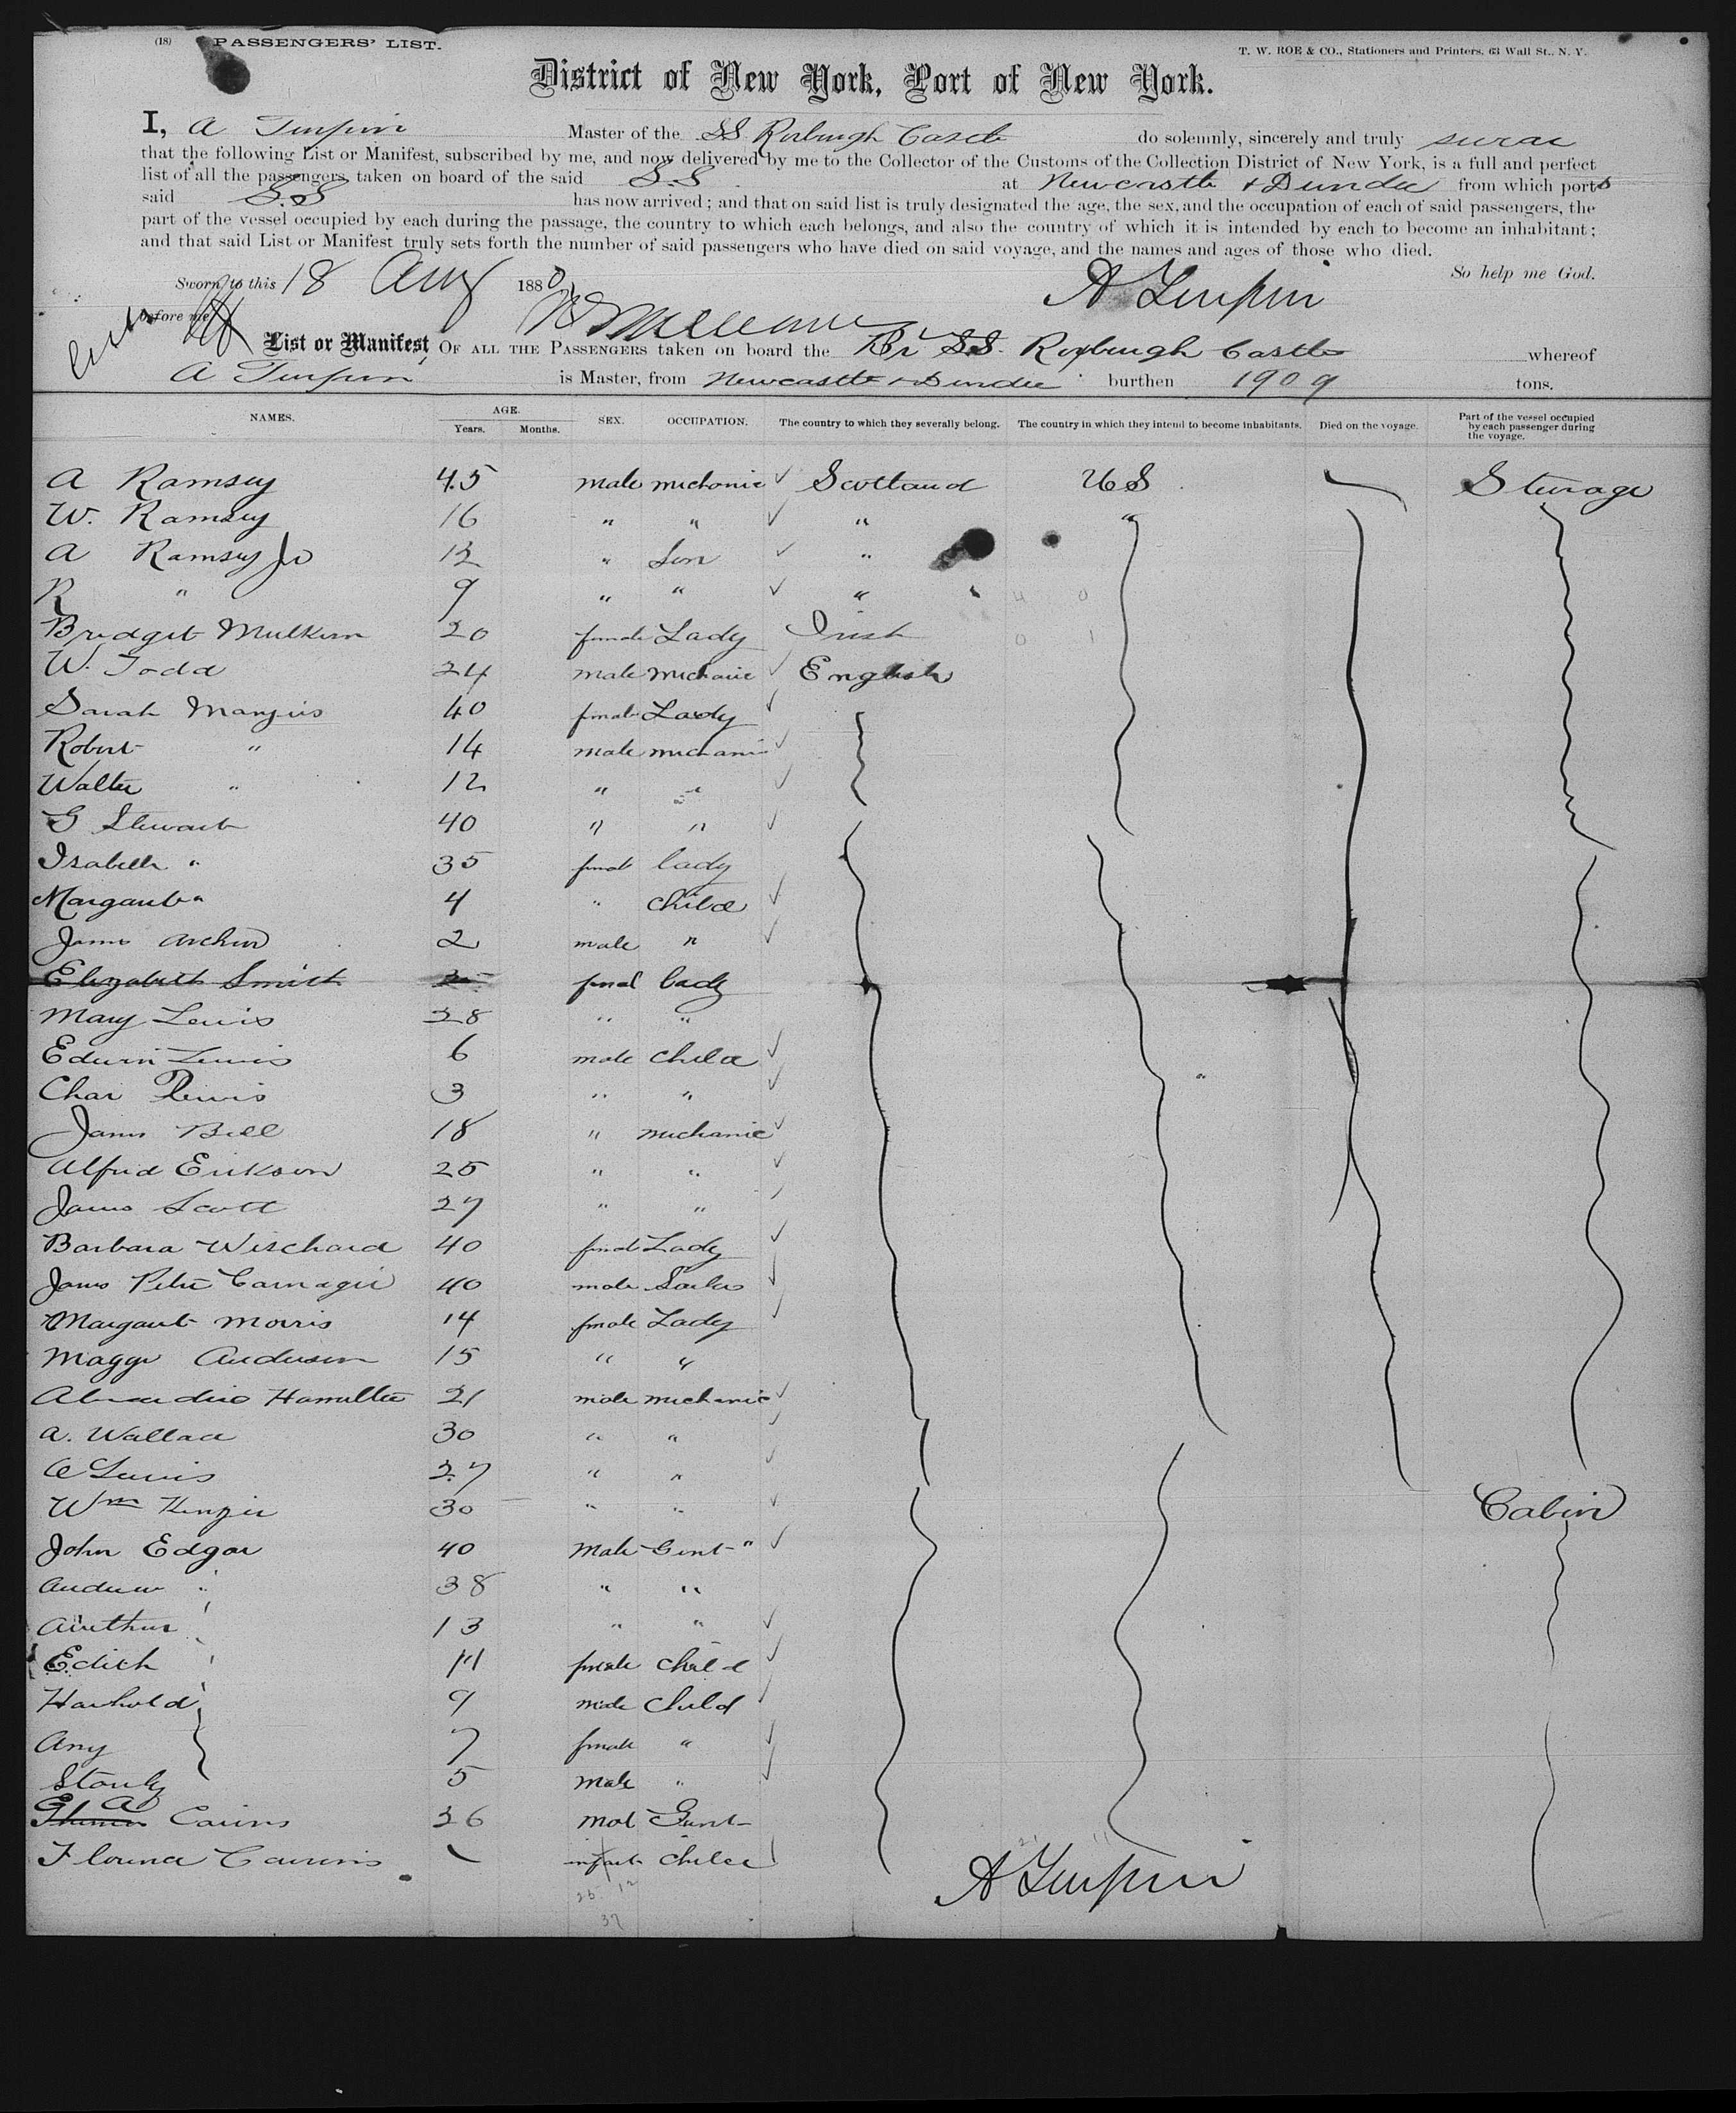 (18) PASSENGERS' LIST.
T. W. ROE & CO., Stationers and Printers, 63 Wall St., N. Y.
District of New York, Port of New York.
I, A Turpin Master of the SS Roxburgh Castle do solemnly, sincerely and truly swear
that the following List or Manifest, subscribed by me, and now delivered by me to the Collector of the Customs of the Collection District of New York, is a full and perfect
list of all the passengers taken on board of the said S.S at Newcastle & Dundee from which ports
said S.S has now arrived; and that on said list is truly designated the age, the sex, and the occupation of each of said passengers, the
part of the vessel occupied by each during the passage, the country to which each belongs, and also the country of which it is intended by each to become an inhabitant;
and that said List or Manifest truly sets forth the number of said passengers who have died on said voyage, and the names and ages of those who died.
So help me God.
Sworn to this 18 Aug 1880 A Turpin
before me
List or Manifest OF ALL THE PASSENGERS taken on board the Br SS. Roxburgh Castle whereof
A Turpin is Master, from Newcastle & Dundee burthen 1909 tons.
NAMES. AGE. Years. Months. SEX. OCCUPATION. The country to which they severally belong. The country in which they intend to become inhabitants. Died on the voyage. Part of the vessel occupied by each passenger during the voyage.
A Ramsey 45 male mechanic Scotland US Sturage
W. Ramsey 16 " " " "
A Ramsey Jr 12 " Son "
R " 9 " " "
Bridget Mulkern 20 female Lady Irish
W. Todd 24 male mechanic English
Sarah 40 female Lady
Robert " 14 male mechanic
Walter " 12 " "
G Stewart 40 " "
Isabella " 35 female lady
Margaret " 4 " child
James Archer 2 male "
Elizabeth Smith female lady
Mary Lewis 28 " "
Edwin Lewis 6 male child
Chas Lewis 3 " "
James Bell 18 " mechanic
Alfred Erikson 25 " "
James Scott 27 " "
Barbara Wischard 40 female Lady
James Peter Carnagie 40 male
Margaret Morris 14 female Lady
Maggie Anderson 15 " "
Hamilton 21 male mechanic
A. Wallace 30 " "
Lewis 27 " "
Wm Kenzie 30 " " Cabin
John Edgar 40 Male Gent "
Andrew " 38 " "
Arthur 13 " "
Edith 11 female child
Harhold 9 male child
Amy 7 female "
Stanly 5 male "
Cairns 26 mal Gent
Florence Cairns infant child
A Turpin
37